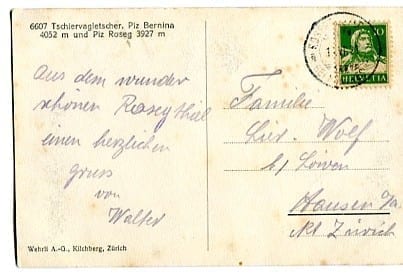 6607 Tschiervagletscher, Piz Bernina
4052 m und Piz Roseg 3927 m
Aus dem wunder
schönen Rosegthal
einen herzlichen
gruss
von
Walter
Wehrli A.-G., Kilchberg, Zürich
HELVETIA
Familie
Wolf
z/ Löwen
Hausen a/a
Kt. Zürich